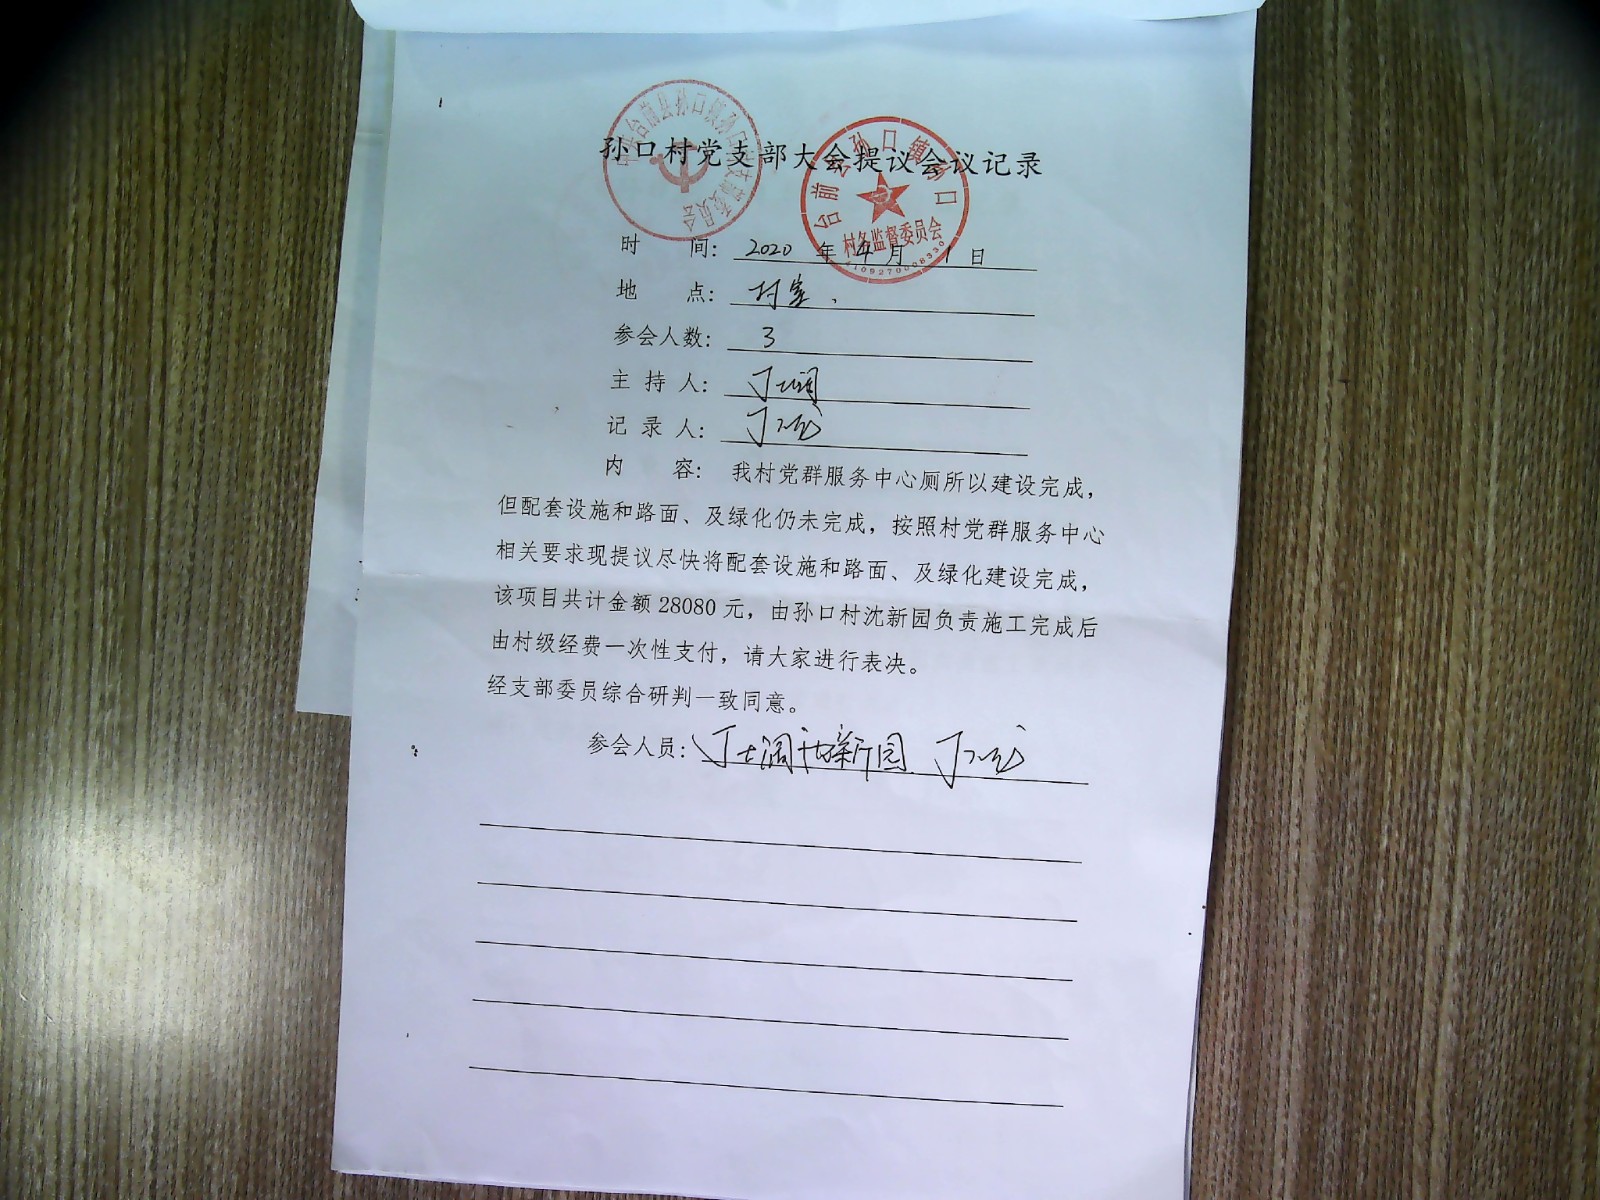 孙口村党支部大会提议会议记录
台前县孙口镇孙口
村务监督委员会
时 间: 2020 年 4 月 1 日
地 点: 村室
参会人数: 3
主 持 人: 丁士阔
记 录 人: 丁
内 容: 我村党群服务中心厕所以建设完成,
但配套设施和路面、及绿化仍未完成,按照村党群服务中心
相关要求现提议尽快将配套设施和路面、及绿化建设完成,
该项目共计金额 28080 元,由孙口村沈新园负责施工完成后
由村级经费一次性支付,请大家进行表决。
经支部委员综合研判一致同意。
参会人员: 丁士阔 沈新园 丁